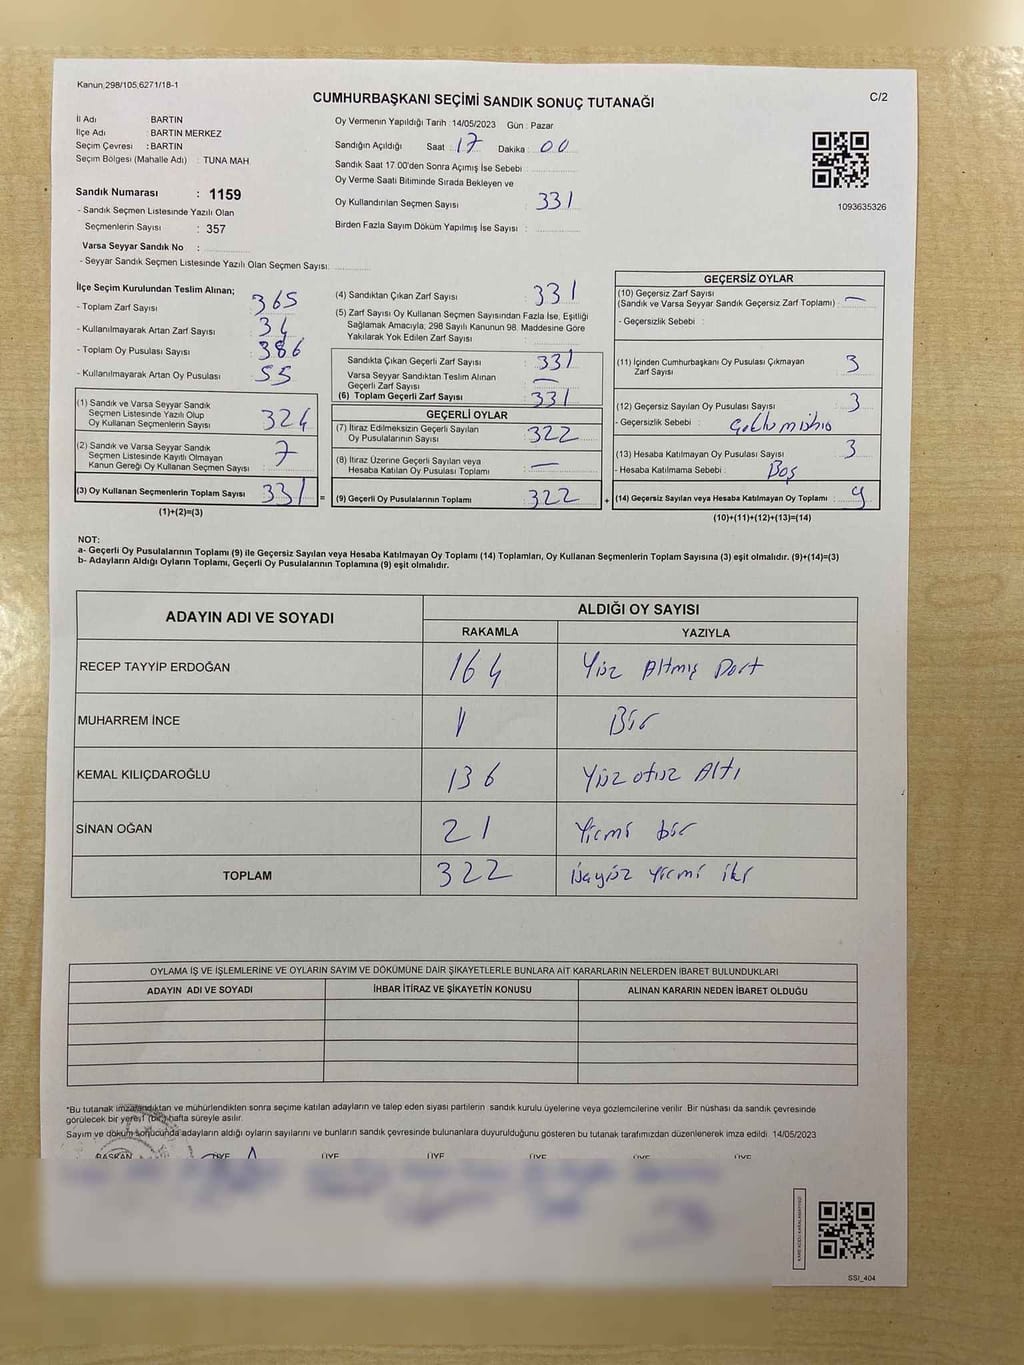 Kanun,298/105,6271/18-1
CUMHURBAŞKANI SEÇİMİ SANDIK SONUÇ TUTANAĞI
C/2
İl Adı BARTIN
İlçe Adı : BARTIN MERKEZ
Seçim Çevresi : BARTIN
Seçim Bölgesi (Mahalle Adı) : TUNA MAH.
Sandık Numarası : 1159
- Sandık Seçmen Listesinde Yazılı Olan
Seçmenlerin Sayısı : 357
Varsa Seyyar Sandık No :
- Seyyar Sandık Seçmen Listesinde Yazılı Olan Seçmen Sayısı:
Oy Vermenin Yapıldığı Tarih : 14/05/2023 Gün : Pazar
Sandığın Açıldığı Saat : 17 Dakika : 00
Sandık Saat 17.00'den Sonra Açımış İse Sebebi :
Oy Verme Saati Bitiminde Sırada Bekleyen ve
Oy Kullandırılan Seçmen Sayısı : 331
Birden Fazla Sayım Döküm Yapılmış İse Sayısı :
1093635326
İlçe Seçim Kurulundan Teslim Alınan;
- Toplam Zarf Sayısı : 365
- Kullanılmayarak Artan Zarf Sayısı : 34
- Toplam Oy Pusulası Sayısı : 386
- Kullanılmayarak Artan Oy Pusulası : 55
(1) Sandık ve Varsa Seyyar Sandık
Seçmen Listesinde Yazılı Olup
Oy Kullanan Seçmenlerin Sayısı : 324
(2) Sandık ve Varsa Seyyar Sandık
Seçmen Listesinde Kayıtlı Olmayan
Kanun Gereği Oy Kullanan Seçmen Sayısı : 7
(3) Oy Kullanan Seçmenlerin Toplam Sayısı : 331 =
(1)+(2)=(3)
(4) Sandıktan Çıkan Zarf Sayısı : 331
(5) Zarf Sayısı Oy Kullanan Seçmen Sayısından Fazla İse, Eşitliği
Sağlamak Amacıyla, 298 Sayılı Kanunun 98. Maddesine Göre
Yakılarak Yok Edilen Zarf Sayısı :
Sandıkta Çıkan Geçerli Zarf Sayısı : 331
Varsa Seyyar Sandıktan Teslim Alınan
Geçerli Zarf Sayısı : —
(6) Toplam Geçerli Zarf Sayısı : 331
GEÇERLİ OYLAR
(7) İtiraz Edilmeksizin Geçerli Sayılan
Oy Pusulalarının Sayısı : 322
(8) İtiraz Üzerine Geçerli Sayılan veya
Hesaba Katılan Oy Pusulası Toplamı : —
(9) Geçerli Oy Pusulalarının Toplamı : 322 +
GEÇERSİZ OYLAR
(10) Geçersiz Zarf Sayısı
(Sandık ve Varsa Seyyar Sandık Geçersiz Zarf Toplamı) : —
- Geçersizlik Sebebi :
(11) İçinden Cumhurbaşkanı Oy Pusulası Çıkmayan
Zarf Sayısı : 3
(12) Geçersiz Sayılan Oy Pusulası Sayısı : 3
- Geçersizlik Sebebi :
(13) Hesaba Katılmayan Oy Pusulası Sayısı : 3
- Hesaba Katılmama Sebebi : Boş
(14) Geçersiz Sayılan veya Hesaba Katılmayan Oy Toplamı : 9
(10)+(11)+(12)+(13)=(14)
NOT:
a- Geçerli Oy Pusulalarının Toplamı (9) ile Geçersiz Sayılan veya Hesaba Katılmayan Oy Toplamı (14) Toplamları, Oy Kullanan Seçmenlerin Toplam Sayısına (3) eşit olmalıdır. (9)+(14)=(3)
b- Adayların Aldığı Oyların Toplamı, Geçerli Oy Pusulalarının Toplamına (9) eşit olmalıdır.
ADAYIN ADI VE SOYADI ALDIĞI OY SAYISI
RAKAMLA YAZIYLA
RECEP TAYYİP ERDOĞAN 164 Yüz Altmış Dört
MUHARREM İNCE 1 Bir
KEMAL KILIÇDAROĞLU 136 Yüz otuz Altı
SİNAN OĞAN 21 Yirmi bir
TOPLAM 322 üçyüz yirmi iki
OYLAMA İŞ VE İŞLEMLERİNE VE OYLARIN SAYIM VE DÖKÜMÜNE DAİR ŞİKAYETLERLE BUNLARA AİT KARARLARIN NELERDEN İBARET BULUNDUKLARI
ADAYIN ADI VE SOYADI İHBAR İTİRAZ VE ŞİKAYETİN KONUSU ALINAN KARARIN NEDEN İBARET OLDUĞU
*Bu tutanak imzalandıktan ve mühürlendikten sonra seçime katılan adayların ve talep eden siyasi partilerin sandık kurulu üyelerine veya gözlemcilerine verilir. Bir nüshası da sandık çevresinde
görülecek bir yere 1 (bir) hafta süreyle asılır.
Sayım ve döküm sonucunda adayların aldığı oyların sayılarını ve bunların sandık çevresinde bulunanlara duyurulduğunu gösteren bu tutanak tarafımızdan düzenlenerek imza edildi. 14/05/2023
BAŞKAN ÜYE ÜYE ÜYE ÜYE ÜYE ÜYE
KARE KODU KARALAMAYINIZ!
SSI_404